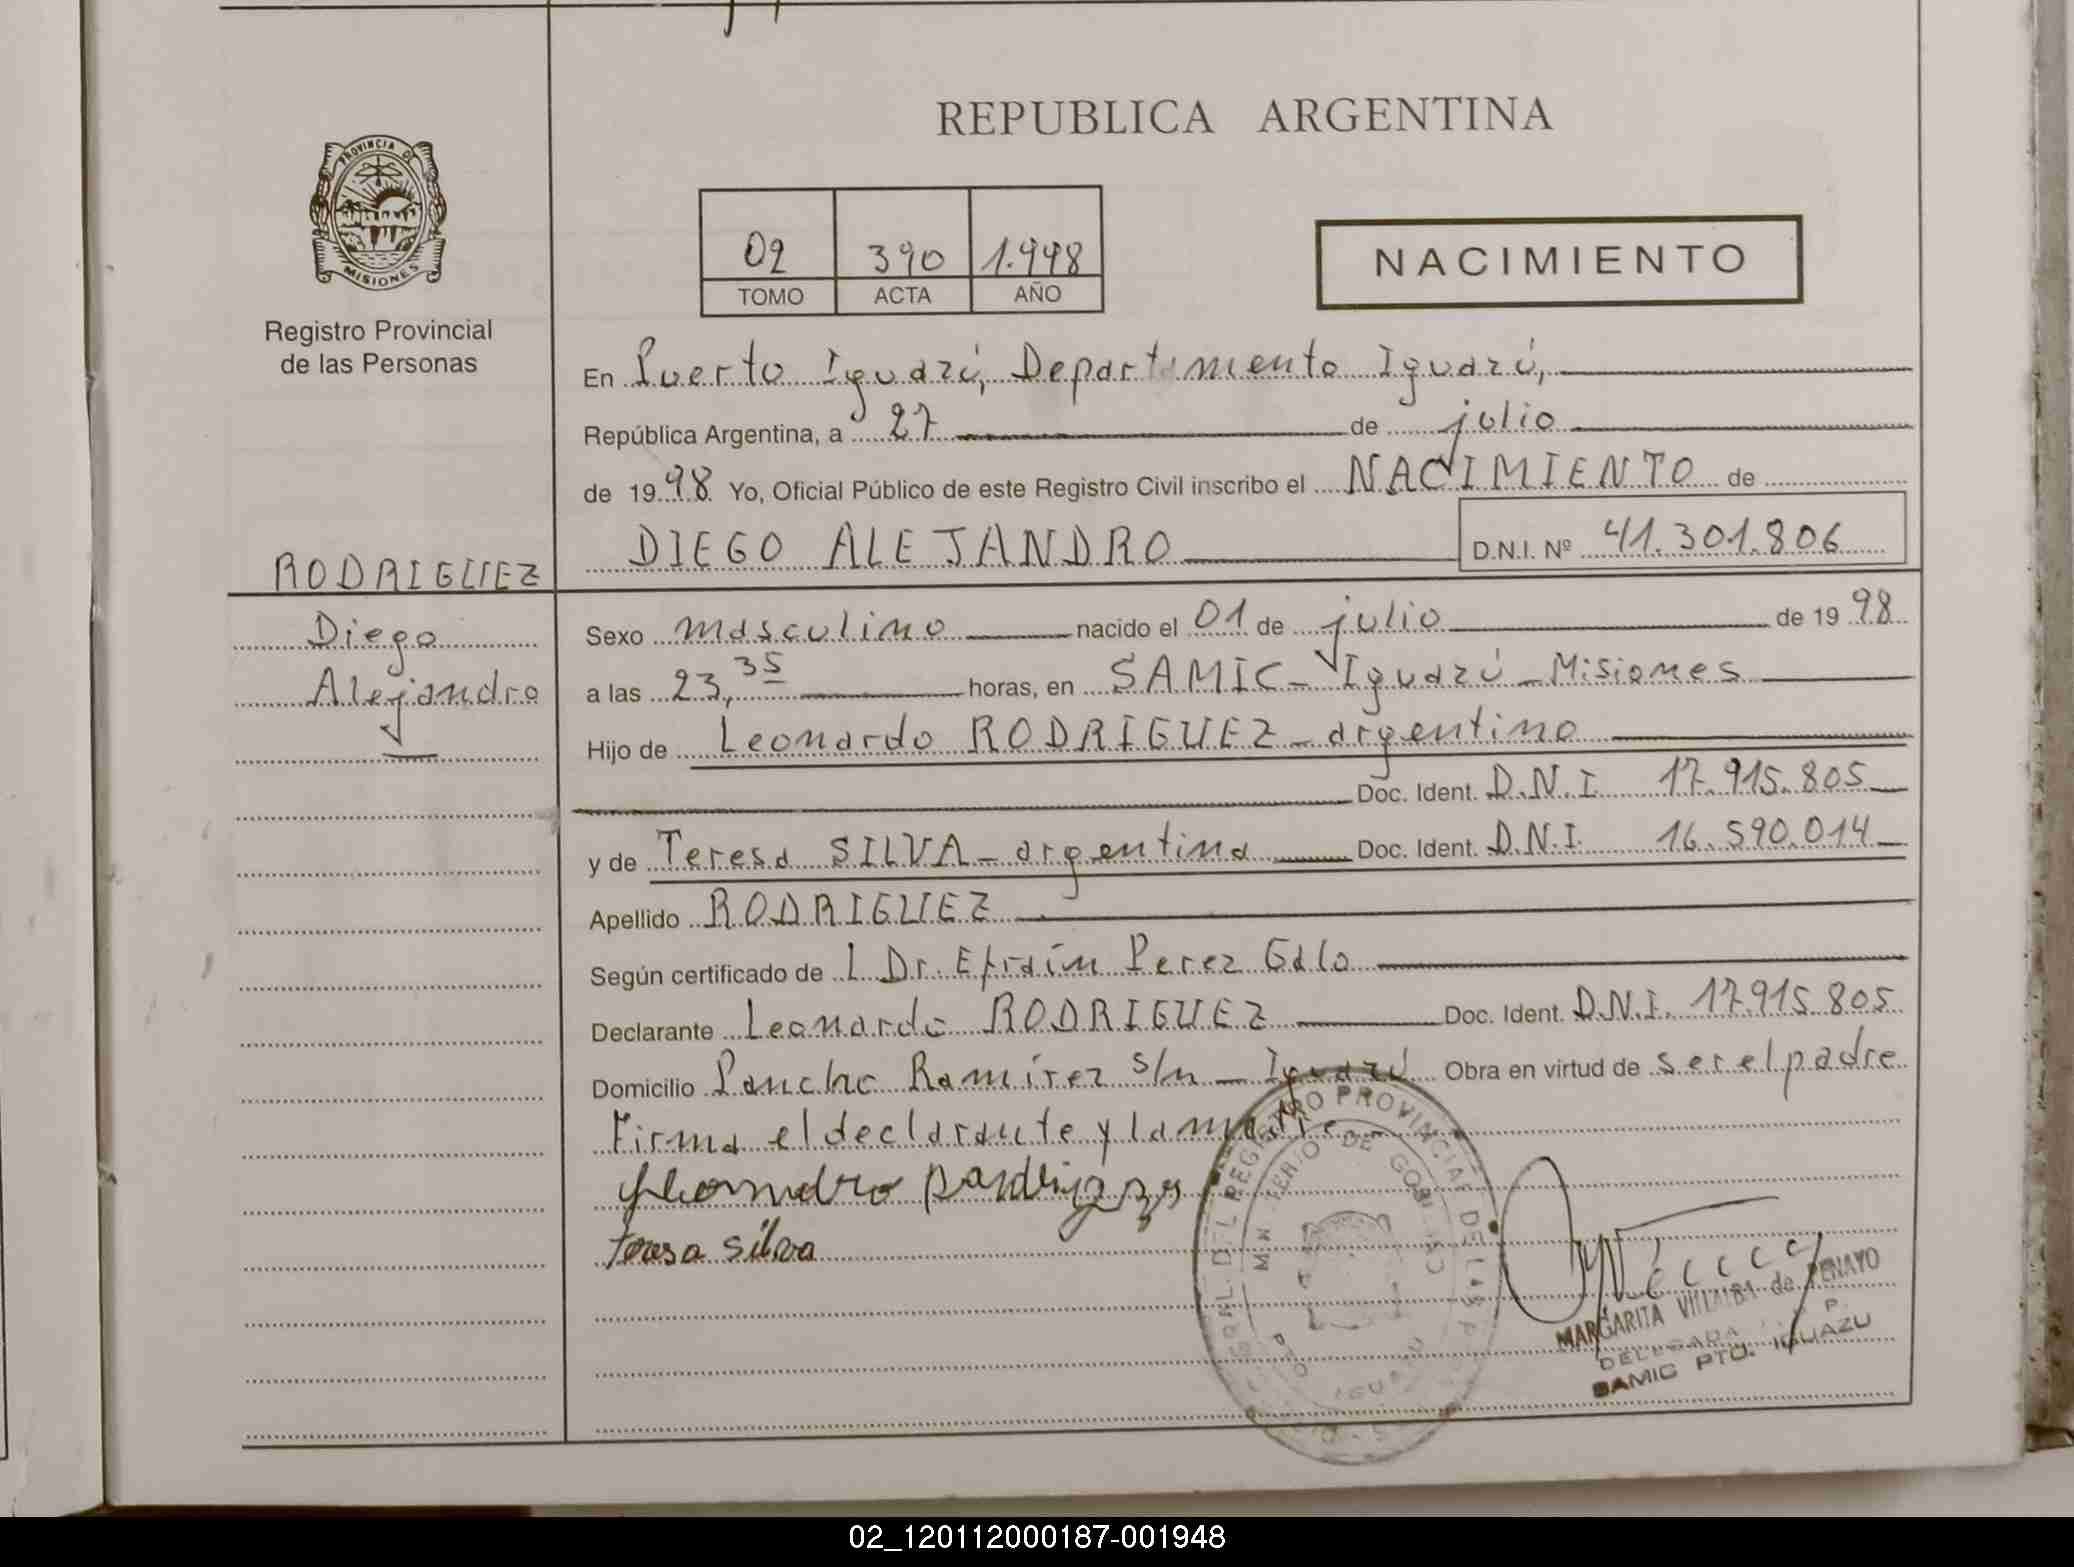 REPUBLICA ARGENTINA
PROVINCIA DE
MISIONES
Registro Provincial
de las Personas
02 390 1.998
TOMO ACTA AÑO
NACIMIENTO
En Puerto Iguazú, Departamento Iguazú,
República Argentina, a 27 de julio
de 1998 Yo, Oficial Público de este Registro Civil inscribo el NACIMIENTO de
DIEGO ALEJANDRO D.N.I. Nº 41.301.806
RODRIGUEZ
Diego
Alejandro
Sexo masculino nacido el 01 de julio de 1998
a las 23,35 horas, en SAMIC - Iguazú - Misiones
Hijo de Leonardo RODRIGUEZ - argentino
Doc. Ident. D.N.I. 17.915.805
y de Teresa SILVA - argentina Doc. Ident. D.N.I. 16.590.014
Apellido RODRIGUEZ
Según certificado de l Dr. Efraín Perez Galo
Declarante Leonardo RODRIGUEZ Doc. Ident. D.N.I. 17.915.805
Domicilio Pancho Ramírez s/n - Iguazú Obra en virtud de ser el padre
Firma el declarante y la madre
teresa silva
REGISTRO PROVINCIAL DE LAS
DE GOBIERNO
MARGARITA VILLALBA de PENAYO
DELEGADA
SAMIC PTO. IGUAZU
02_120112000187-001948